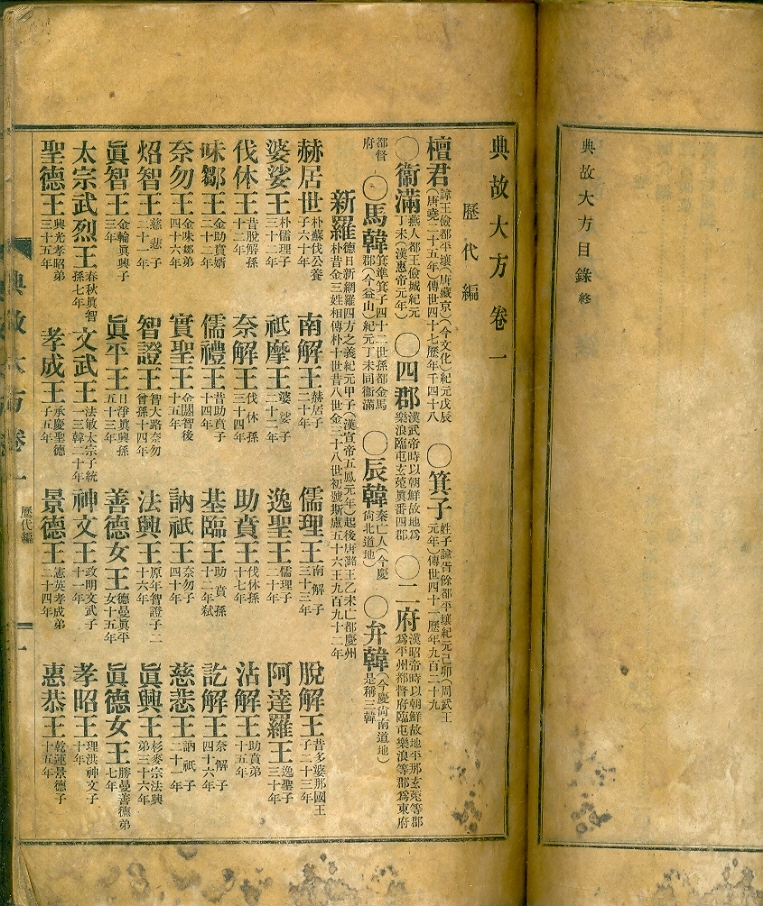 典故大方目錄終
典故大方卷一
歷代編
檀君諱王儉都平壤(唐藏京)(今文化)紀元戊辰(唐堯二十五年)傳世四十七歷年千四十八〇箕子姓子諱胥餘都平壤紀元己卯(周武王元年)傳世四十一歷年九百二十九
〇衞滿燕人都王儉城紀元丁未(漢惠帝元年)〇四郡漢武帝時以朝鮮故地爲樂浪臨屯玄菟眞番四郡〇二府漢昭帝時以朝鮮故地平那玄菟等郡爲平州都督府臨屯樂浪等郡爲東府
都督府〇馬韓箕準箕子四十二世孫都金馬郡(今益山)紀元丁未同衞滿〇辰韓秦亡人(今慶尙北道地)〇弁韓(今慶尙南道地)是稱三韓
新羅德日新網羅四方之義紀元甲子(漢宣帝五鳳元年)起後唐潞王乙未亡都慶州朴昔金三姓相傳朴十世昔八世金三十八世初號斯盧五十六王九百九十二年
赫居世朴蘇伐公養子六十年 南解王赫居子二十年 儒理王南解子三十三年 脫解王昔多婆那國王子二十三年
婆娑王朴儒理子三十二年 祇摩王婆娑子二十二年 逸聖王儒理子二十年 阿達羅王逸聖子三十年
伐休王昔脫解孫十二年 奈解王伐休孫三十四年 助賁王伐休孫十七年 沾解王助賁弟十五年
味鄒王金助賁婿二十二年 儒禮王昔助賁子十四年 基臨王助賁孫十二年弑 訖解王奈解子四十六年
奈勿王金味鄒弟四十六年 實聖王金閼智後十五年 訥祇王奈勿子四十年 慈悲王訥祇子二十一年
炤智王慈悲子二十一年 智證王智大路奈勿曾孫十四年 法興王原年智證子二十六年 眞興王彡麥宗法興弟三十六年
眞智王金輪眞興子三年 眞平王日淨眞興孫五十三年 善德女王德曼眞平女十五年 眞德女王勝曼善德弟七年
太宗武烈王春秋眞智孫七年 文武王法敏太宗子統一三韓二十年 神文王政明文武子十一年 孝昭王理洪神文子十年
聖德王興光孝昭弟三十五年 孝成王承慶聖德子五年 景德王憲英孝成弟二十四年 惠恭王乾運景德子十五年
典故大方卷一 歷代編 一